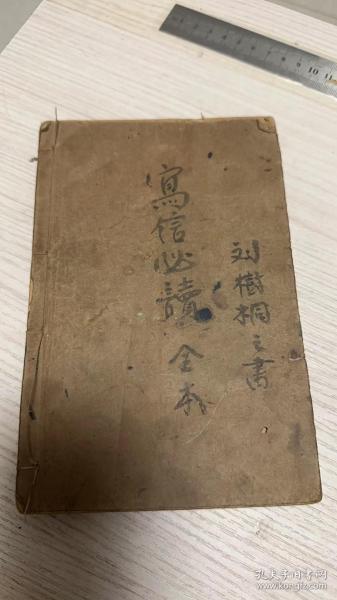 刘樹桐之書
寫信必讀 全本
10 11
孔夫子旧书网
www.kongfz.com